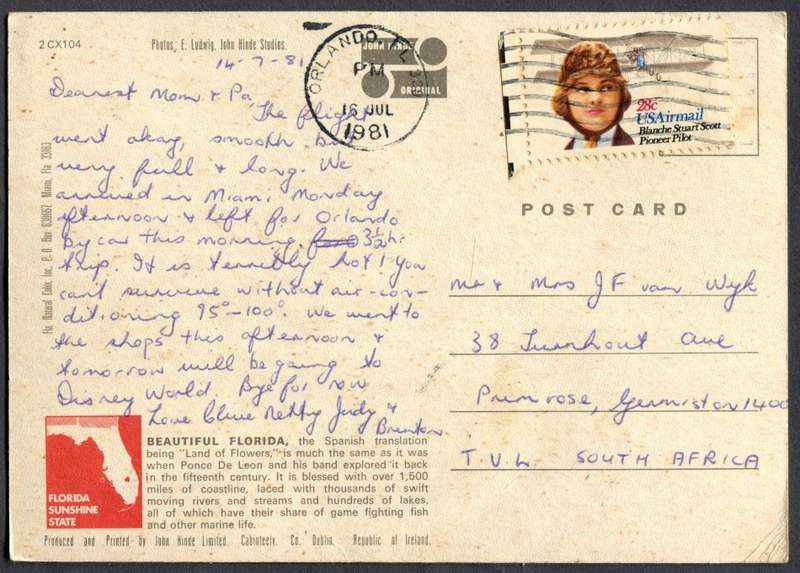 2CX104
Photos, E. Ludwig, John Hinde Studios.
14-7-81
Dearest Mom & Pa
The flight
went okay, smooth but
very full & long. We
arrived in Miami Monday
afternoon & left for Orlando
by car this morning. 3½ hr
trip. It is terribly hot! You
can't survive without air-con-
ditioning 95°-100°. We went to
the shops this afternoon &
tomorrow will be going to
Disney World. Bye for now
Love Clive Netty Judy &
Brenton
Fla. Natural Color, Inc. P. O. Box Miami, Fla 33163
BEAUTIFUL FLORIDA, the Spanish translation
being "Land of Flowers," is much the same as it was
when Ponce De Leon and his band explored it back
in the fifteenth century. It is blessed with over 1,500
miles of coastline, laced with thousands of swift
moving rivers and streams and hundreds of lakes,
all of which have their share of game fighting fish
and other marine life.
FLORIDA
SUNSHINE
STATE
Produced and Printed by John Hinde Limited, Cabinteely, Co. Dublin, Republic of Ireland.
JOHN HINDE
ORIGINAL
ORLANDO, FL
PM
16 JUL
1981
28c
USAirmail
Blanche Stuart Scott
Pioneer Pilot
POST CARD
Mr & Mrs JF van Wyk
38 Turnhout Ave
Primrose, Germiston 1400
T.V.L. SOUTH AFRICA